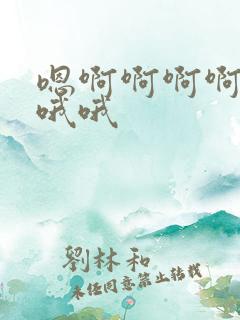 嗯啊啊啊啊
哦哦
劉林和
未经同意禁止转载